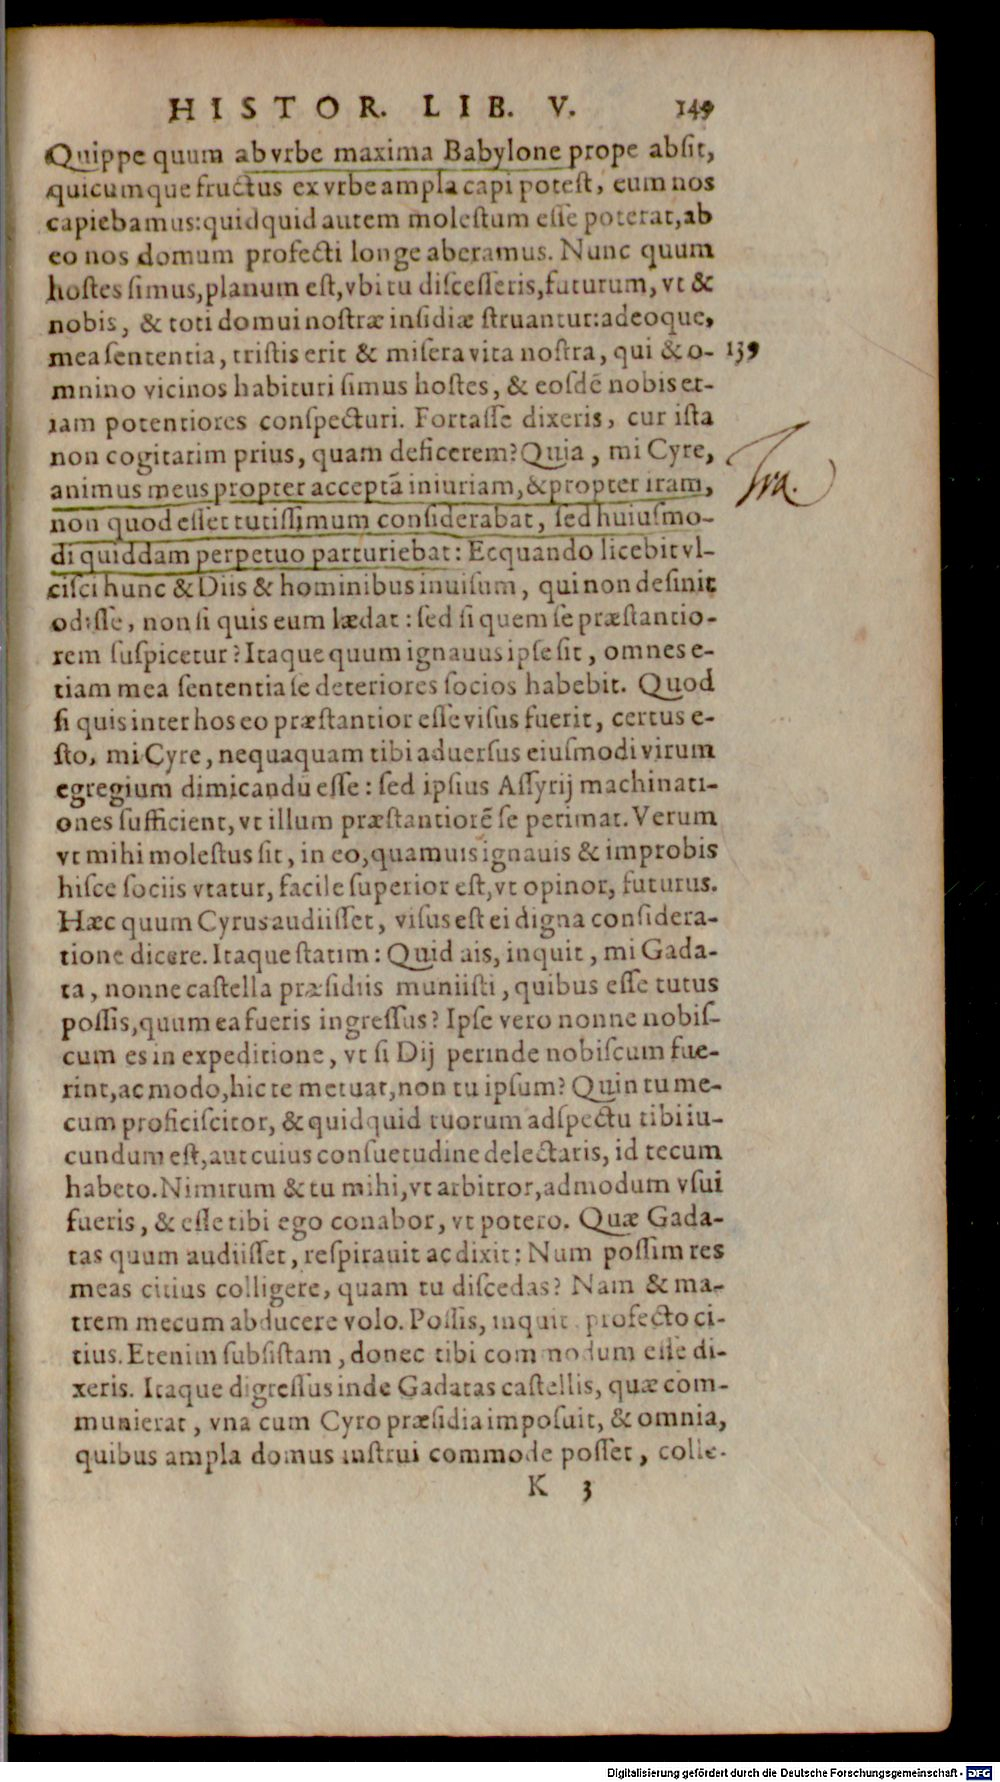 HISTOR. LIB. V. 149
Quippe quum ab vrbe maxima Babylone prope absit,
quicumque fructus ex vrbe ampla capi potest, eum nos
capiebamus: quidquid autem molestum esse poterat, ab
eo nos domum profecti longe aberamus. Nunc quum
hostes simus, planum est, vbi tu discesseris, futurum, vt &
nobis, & toti domui nostræ insidiæ struantur: adeoque,
mea sententia, tristis erit & misera vita nostra, qui & o- 139
mnino vicinos habituri simus hostes, & eosdē nobis et-
iam potentiores conspecturi. Fortasse dixeris, cur ista
non cogitarim prius, quam deficerem? Quia, mi Cyre,
animus meus propter acceptā iniuriam, & propter iram,
Ira.
non quod esset tutissimum considerabat, sed huiusmo-
di quiddam perpetuo parturiebat: Ecquando licebit vl-
cisci hunc & Diis & hominibus inuisum, qui non desinit
odisse, non si quis eum lædat: sed si quem se præstantio-
rem suspicetur? Itaque quum ignauus ipse sit, omnes e-
tiam mea sententia se deteriores socios habebit. Quod
si quis inter hos eo præstantior esse visus fuerit, certus e-
sto, mi Cyre, nequaquam tibi aduersus eiusmodi virum
egregium dimicandū esse: sed ipsius Assyrij machinati-
ones sufficient, vt illum præstantiorē se perimat. Verum
vt mihi molestus sit, in eo, quamuis ignauis & improbis
hisce sociis vtatur, facile superior est, vt opinor, futurus.
Hæc quum Cyrus audiisset, visus est ei digna considera-
tione dicere. Itaque statim: Quid ais, inquit, mi Gada-
ta, nonne castella præsidiis muniisti, quibus esse tutus
possis, quum ea fueris ingressus? Ipse vero nonne nobis-
cum es in expeditione, vt si Dij perinde nobiscum fue-
rint, ac modo, hic te metuat, non tu ipsum? Quin tu me-
cum proficiscitor, & quidquid tuorum adspectu tibi iu-
cundum est, aut cuius consuetudine delectaris, id tecum
habeto. Nimirum & tu mihi, vt arbitror, admodum vsui
fueris, & esse tibi ego conabor, vt potero. Quæ Gada-
tas quum audiisset, respirauit ac dixit: Num possim res
meas citius colligere, quam tu discedas? Nam & ma-
trem mecum abducere volo. Possis, inquit, profecto ci-
tius. Etenim subsistam, donec tibi commodum esse di-
xeris. Itaque digressus inde Gadatas castellis, quæ com-
munierat, vna cum Cyro præsidia imposuit, & omnia,
quibus ampla domus instrui commode posset, colle-
K 3
Digitalisierung gefördert durch die Deutsche Forschungsgemeinschaft - DFG